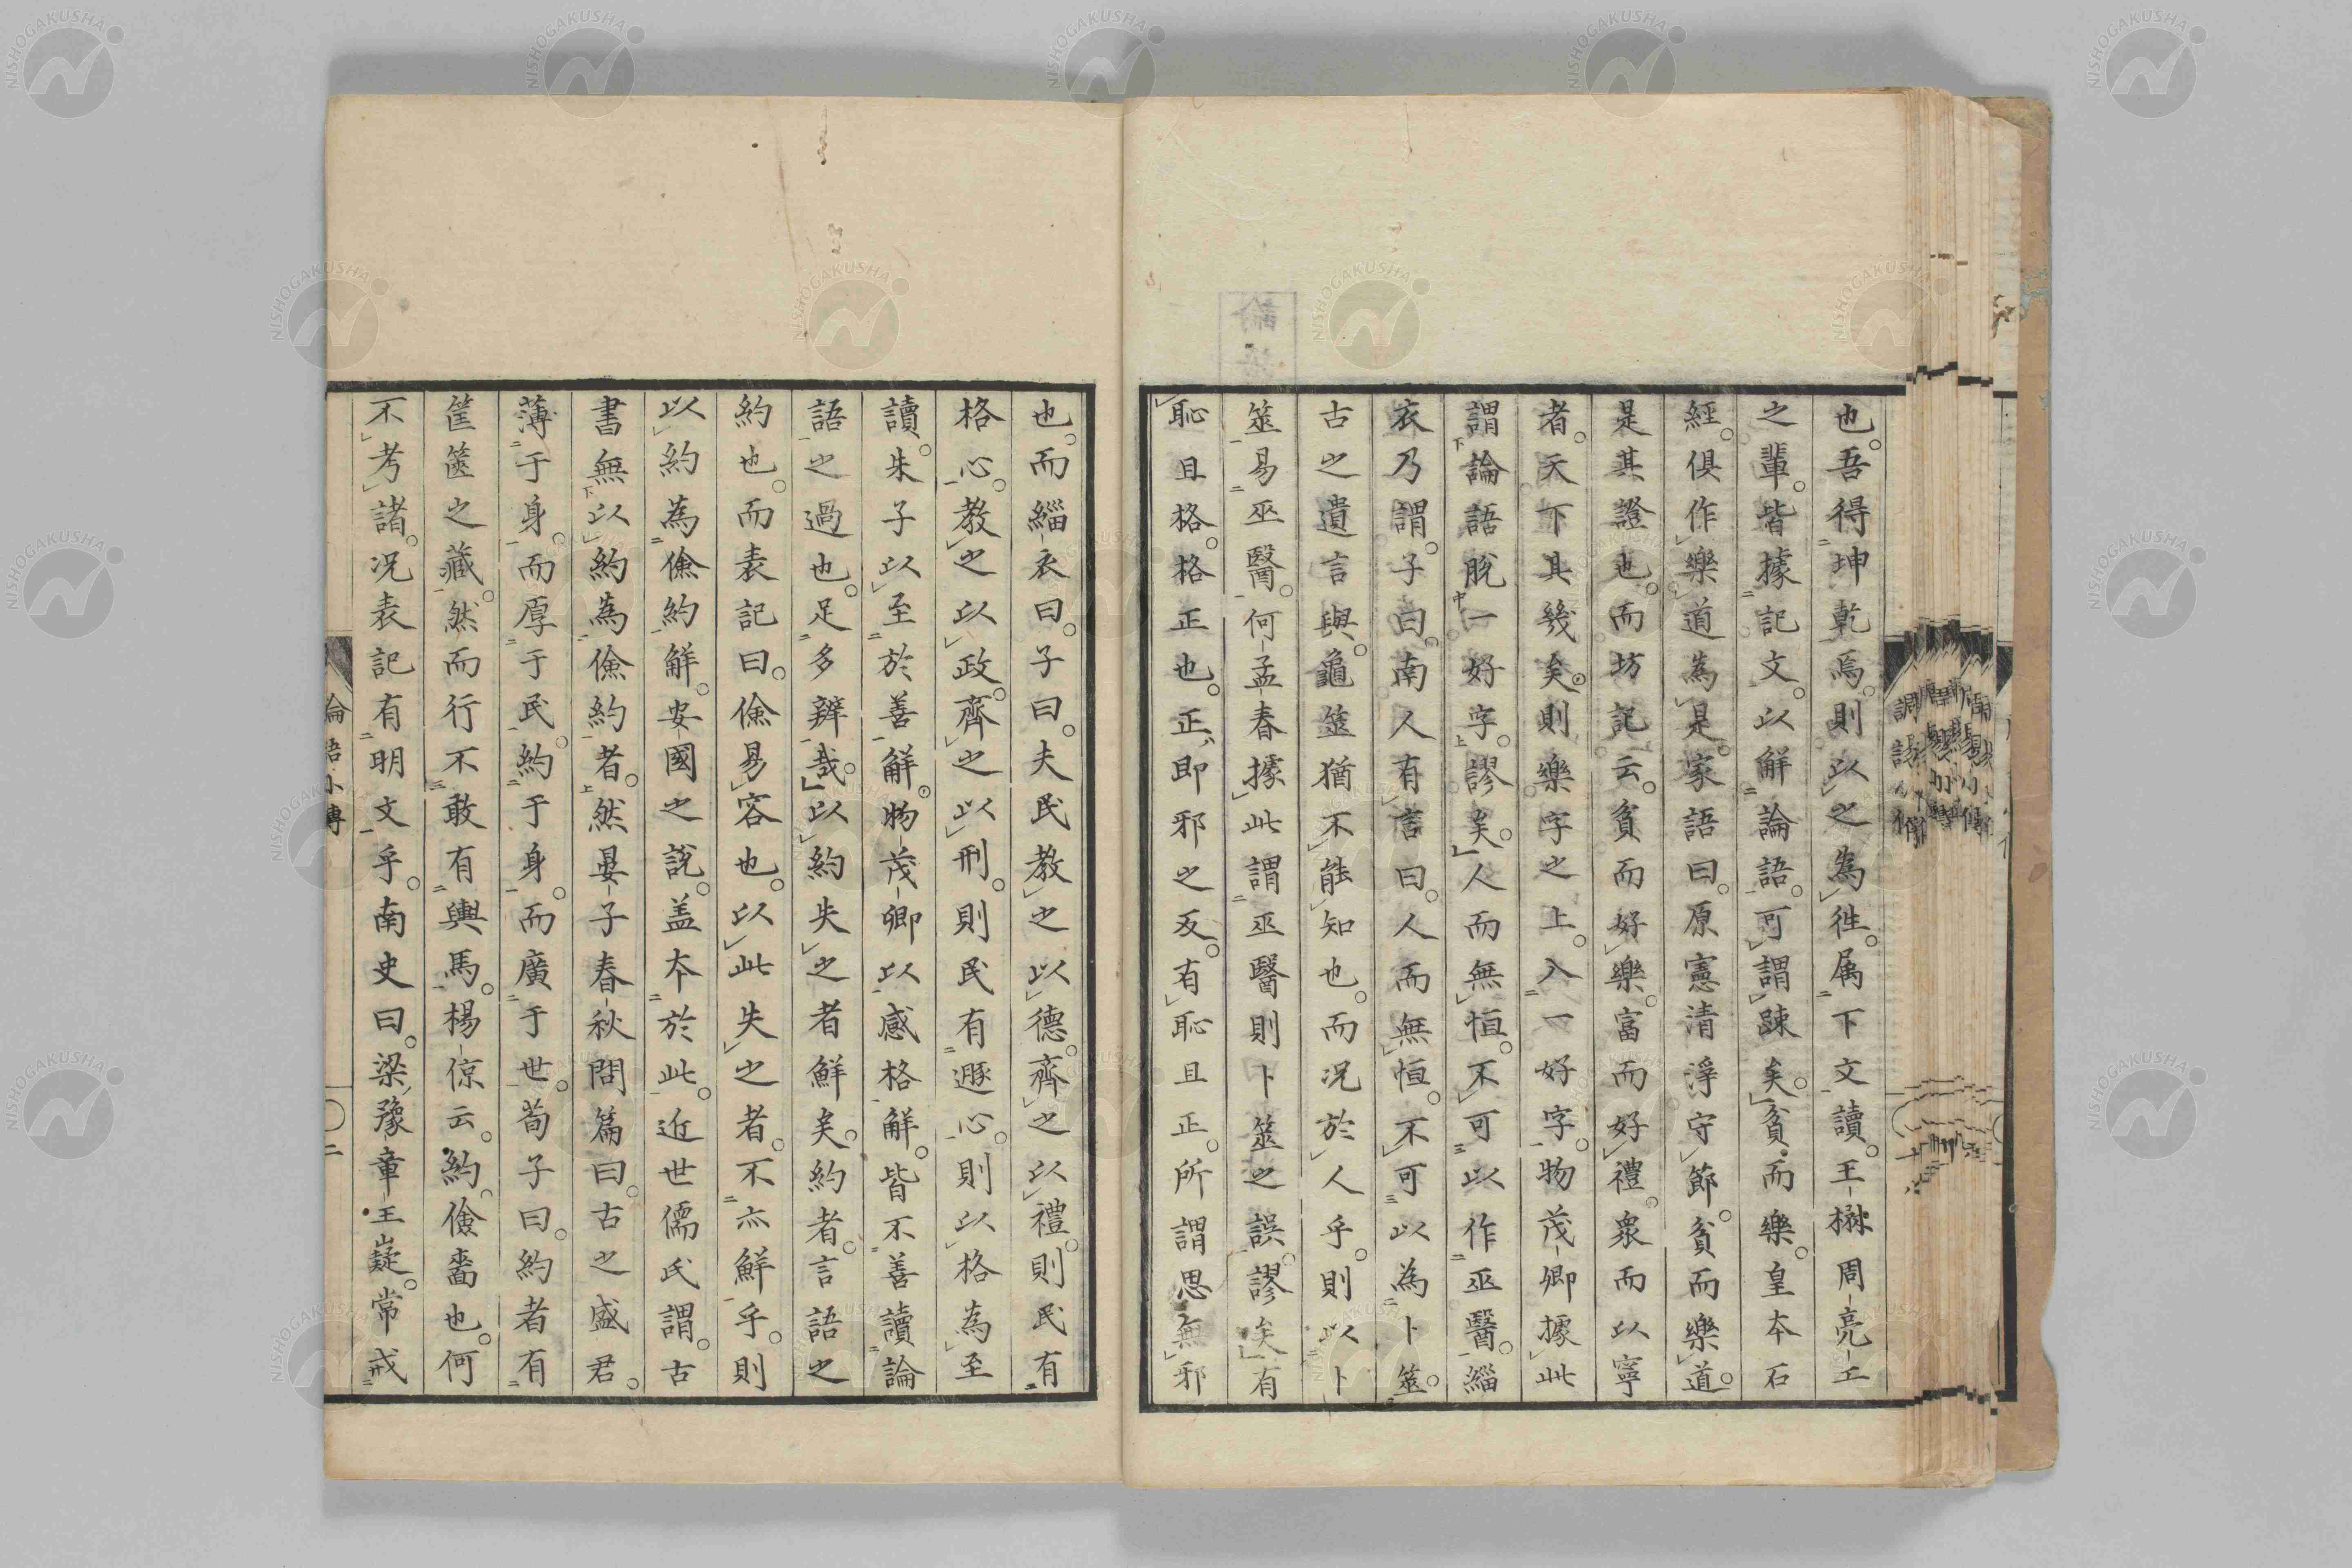 也。吾得坤乾焉。則以之為徃。属下文讀。王楙周亮工
之輩。皆據記文。以解論語。可謂踈矣。貧而樂。皇本石
經。俱作樂道為是。家語曰。原憲清淨守節。貧而樂道。
是其證也。而坊記云。貧而好樂。富而好禮。衆而以寧
者。天下其幾矣。則樂字之上。入一好字。物茂卿據此
謂論語脱一好字。謬矣。人而無恒。不可以作巫醫。緇
衣乃謂。子曰。南人有言曰。人而無恒。不可以為卜筮。
古之遺言與。龜筮猶不能知也。而况於人乎。則以卜
筮易巫醫。何孟春據此謂巫醫則卜筮之誤。謬矣。有
恥且格。格正也。正即邪之反。有恥且正。所謂思無邪
也。而緇衣曰。子曰。夫民教之以德。齊之以禮。則民有
格心。教之以政。齊之以刑。則民有遯心。則以格為至
讀。朱子以至於善解。物茂卿以感格解。皆不善讀論
語之過也。足多辨哉。以約失之者鮮矣。約者。言語之
約也。而表記曰。儉易容也。以此失之者。不亦鮮乎。則
以約為儉約解。安國之說。盖本於此。近世儒氏謂。古
書無以約為儉約者。然晏子春秋問篇曰。古之盛君。
薄于身。而厚于民。約于身。而廣于世。荀子曰。約者有
筐篋之藏。然而行不敢有輿馬。楊倞云。約。儉嗇也。何
不考諸。况表記有明文乎。南史曰。梁豫章王嶷。常戒
論語小傳
二